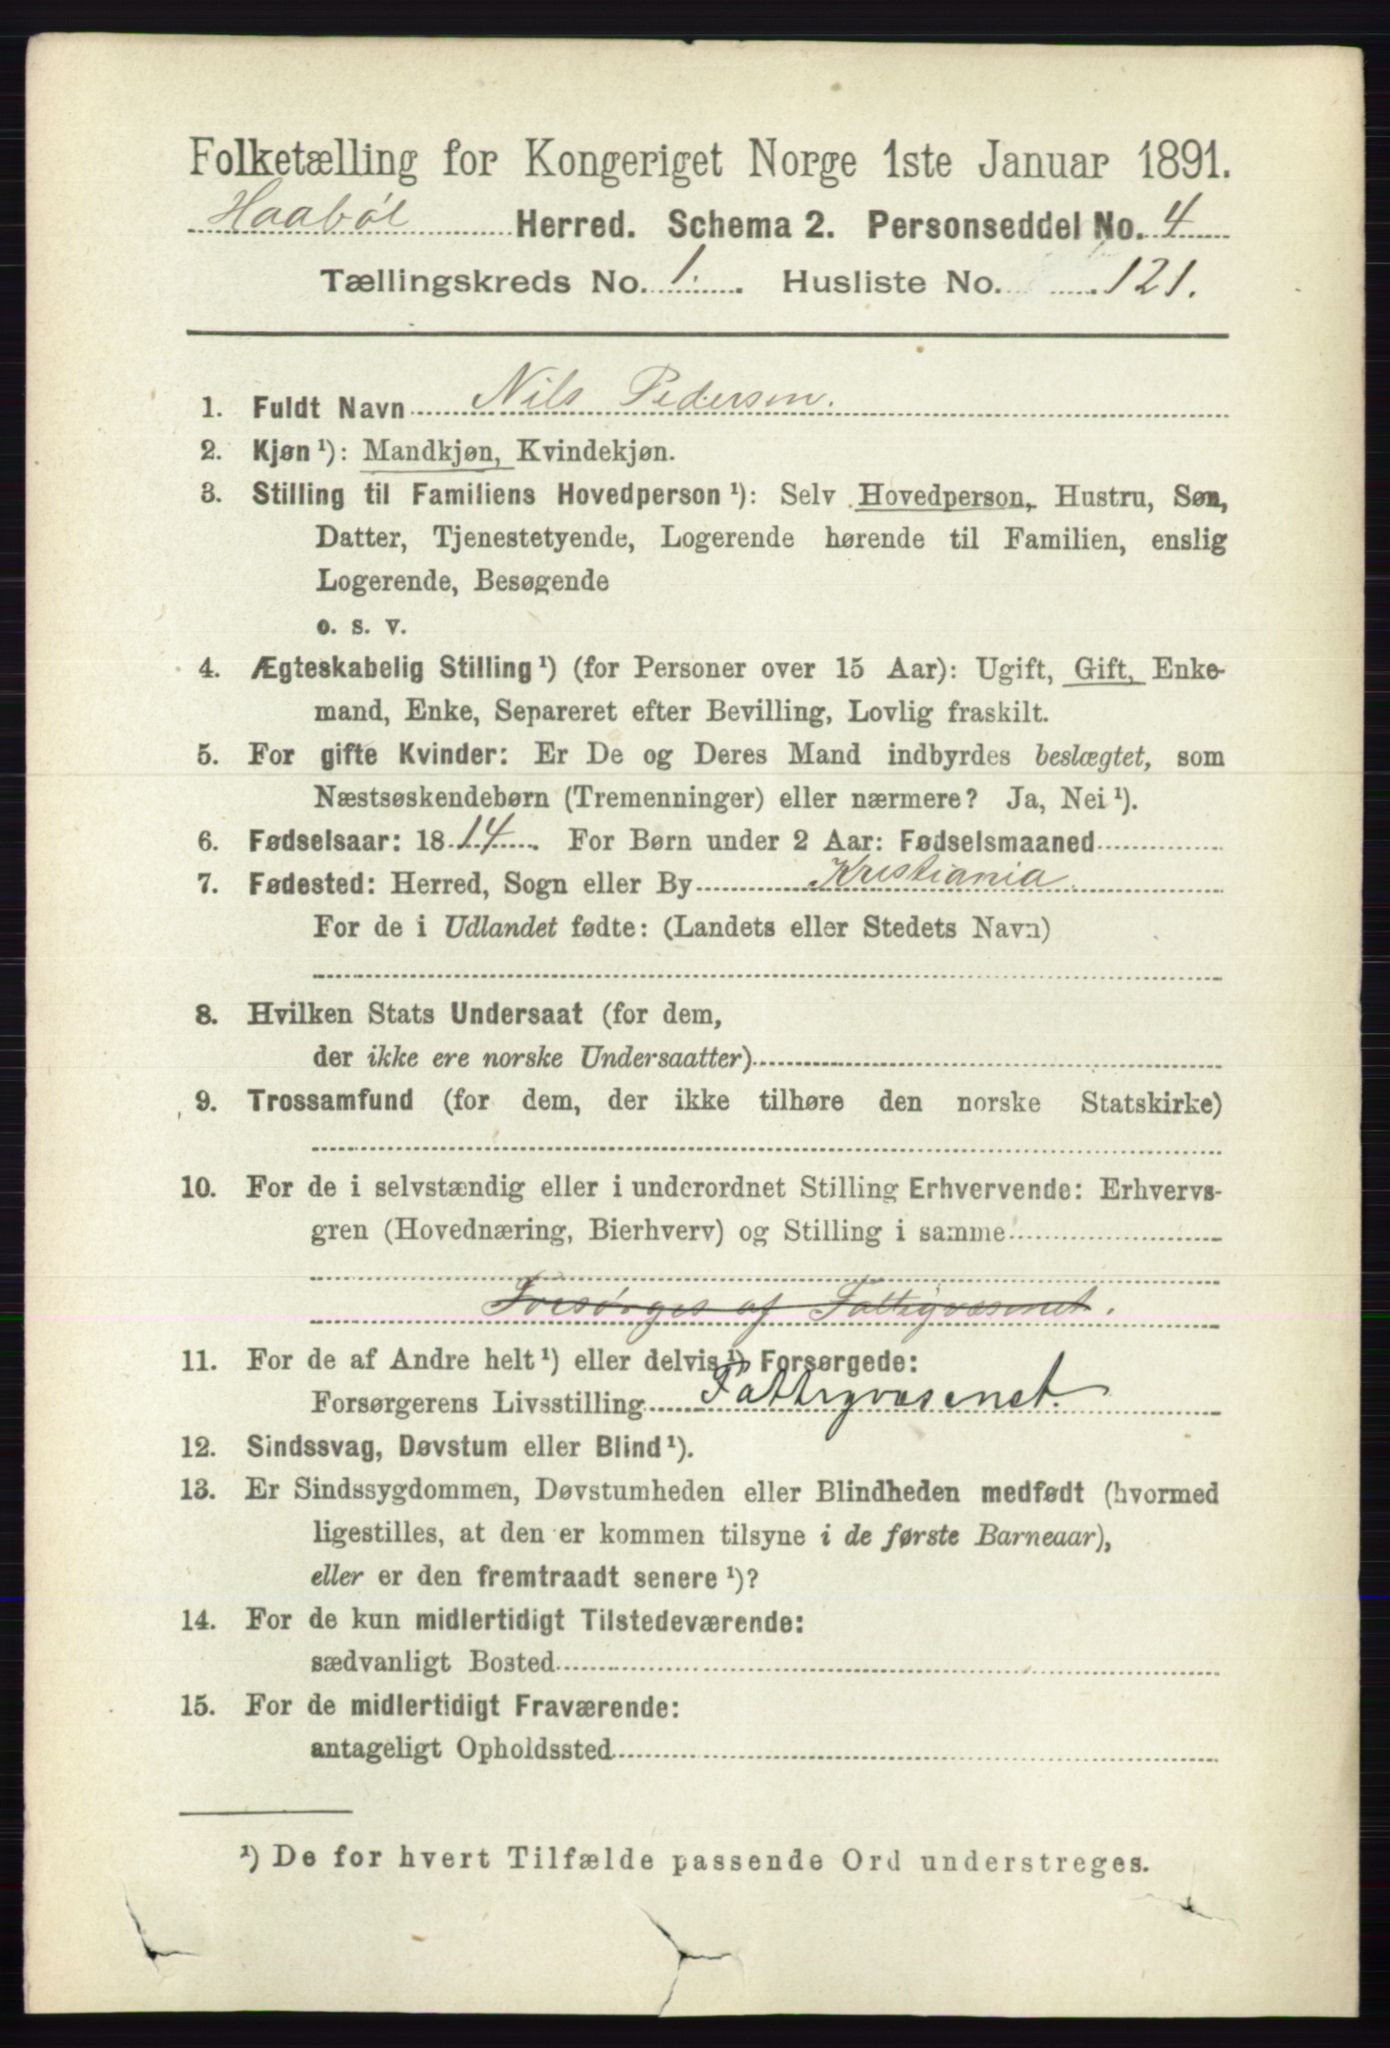 Folketælling for Kongeriget Norge 1ste Januar 1891.
Haabøl Herred. Schema 2. Personseddel No. 4
Tællingskreds No. 1. Husliste No. 121.
1. Fuldt Navn Nils Pedersen.
2. Kjøn ¹): Mandkjøn, Kvindekjøn.
3. Stilling til Familiens Hovedperson ¹): Selv Hovedperson, Hustru, Søn,
Datter, Tjenestetyende, Logerende hørende til Familien, enslig
Logerende, Besøgende
o. s. v.
4. Ægteskabelig Stilling ¹) (for Personer over 15 Aar): Ugift, Gift, Enke-
mand, Enke, Separeret efter Bevilling, Lovlig fraskilt.
5. For gifte Kvinder: Er De og Deres Mand indbyrdes beslægtet, som
Næstsøskendebørn (Tremenninger) eller nærmere? Ja, Nei ¹).
6. Fødselsaar: 1814. For Børn under 2 Aar: Fødselsmaaned
7. Fødested: Herred, Sogn eller By Kristiania
For de i Udlandet fødte: (Landets eller Stedets Navn)
8. Hvilken Stats Undersaat (for dem,
der ikke ere norske Undersaatter)
9. Trossamfund (for dem, der ikke tilhøre den norske Statskirke)
10. For de i selvstændig eller i underordnet Stilling Erhvervende: Erhvervs-
gren (Hovednæring, Bierhverv) og Stilling i samme
Forsørges af Fattigvæsenet.
11. For de af Andre helt ¹) eller delvis ¹) Forsørgede:
Forsørgerens Livsstilling Fattigvæsenet.
12. Sindssvag, Døvstum eller Blind ¹).
13. Er Sindssygdommen, Døvstumheden eller Blindheden medfødt (hvormed
ligestilles, at den er kommen tilsyne i de første Barneaar),
eller er den fremtraadt senere ¹)?
14. For de kun midlertidigt Tilstedeværende:
sædvanligt Bosted
15. For de midlertidigt Fraværende:
antageligt Opholdssted
¹) De for hvert Tilfælde passende Ord understreges.